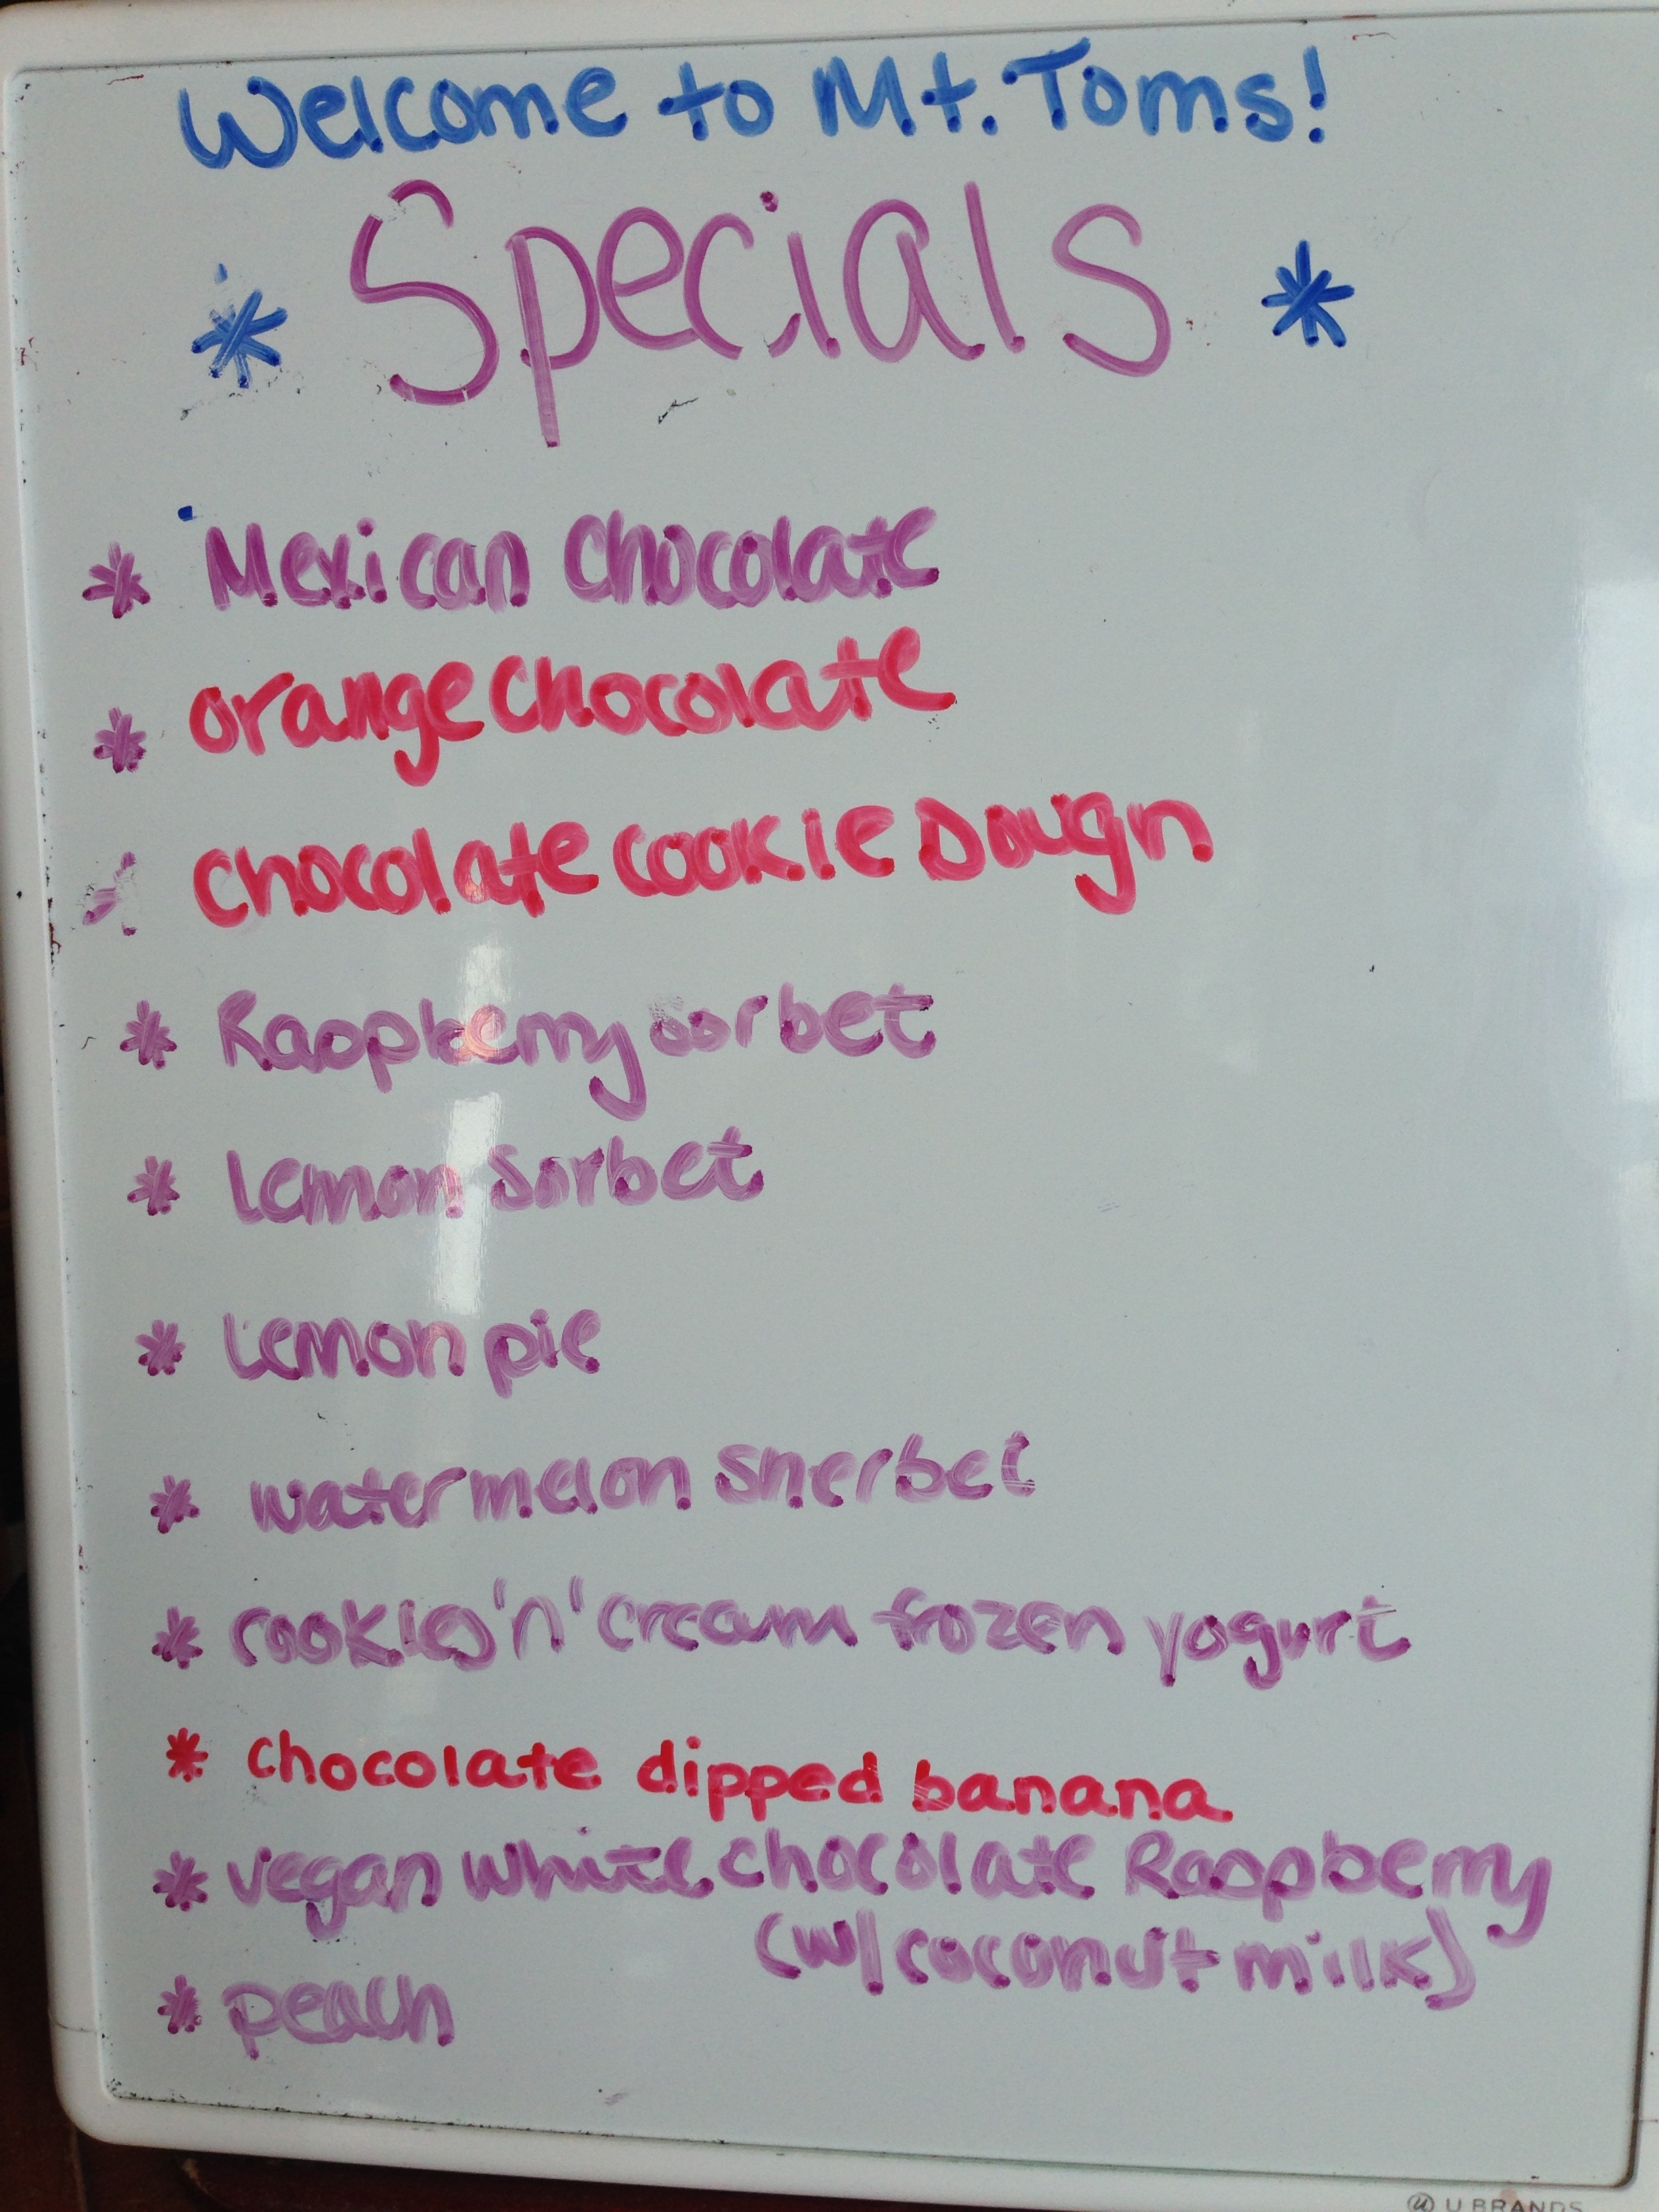 Welcome to Mt. Toms!
* Specials *
* Mexican Chocolate
* Orange Chocolate
* Chocolate Cookie Dough
* Raspberry sorbet
* Lemon Sorbet
* Lemon pie
* watermelon sherbet
* cookies 'n' cream frozen yogurt
* chocolate dipped banana
* vegan white chocolate Raspberry
(w/ coconut milk)
* peach
U BRANDS